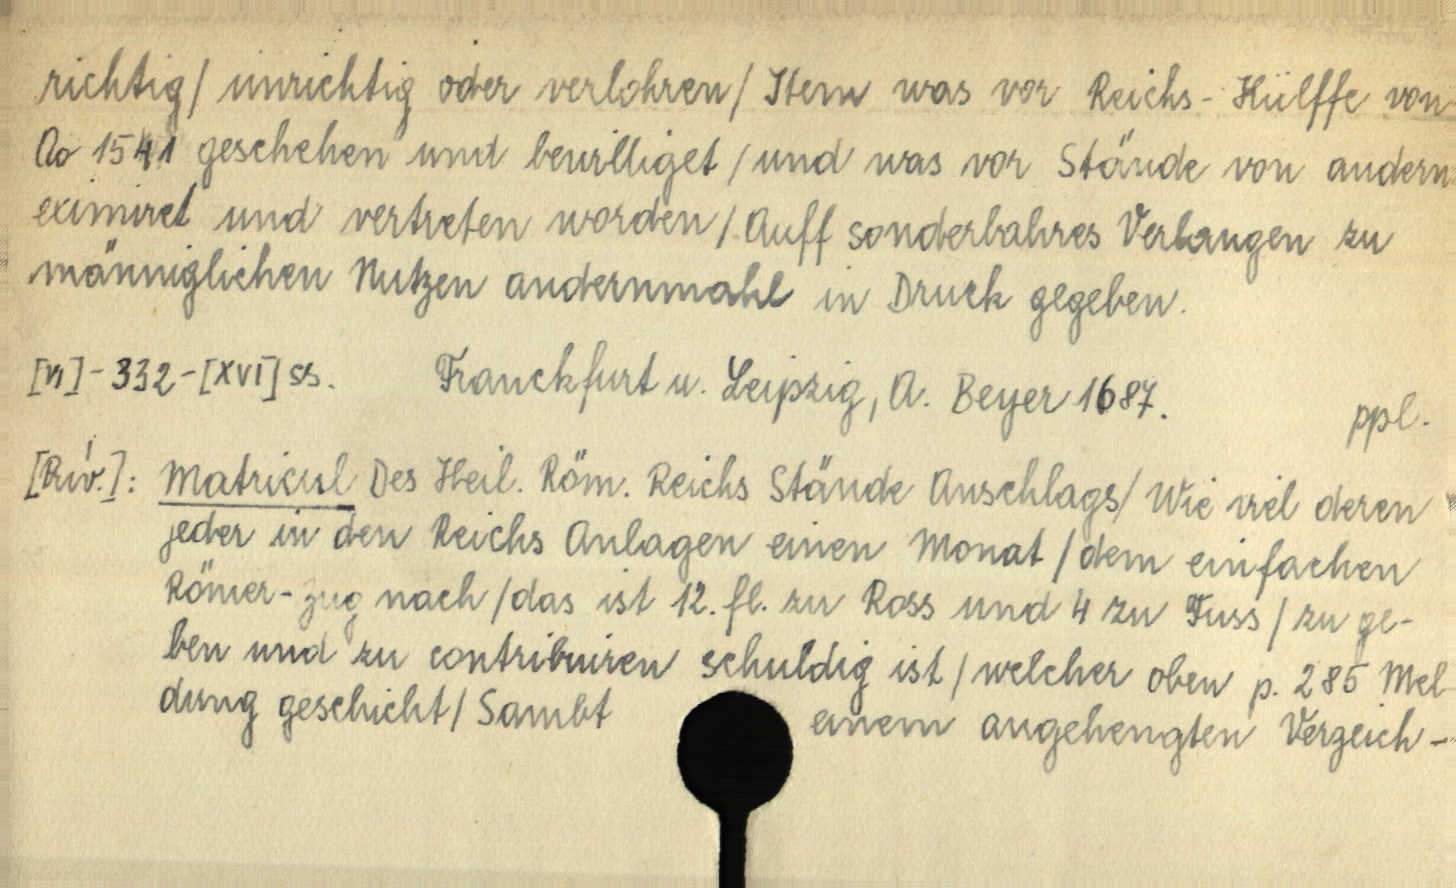 richtig/ unrichtig oder verlohren/ Item was vor Reichs-Hülffe von
Ao 1541 geschehen und bewilliget/und was vor Stände von andern
eximiret und vertreten worden/Auff sonderbahres Verlangen zu
männiglichen Nutzen andernmahl in Druck gegeben.
[VI]-332-[XVI] ss. Franckfurt u. Leipzig, A. Beyer 1687. ppl.
[Rúv.]: Matricul Des Heil. Röm. Reichs Stände Anschlags/ Wie viel deren
jeder in den Reichs Anlagen einen Monat/dem einfachen
Römer-zug nach/das ist 12.fl. zu Ross und 4 zu Fuss/zu ge-
ben und zu contribuiren schuldig ist/welcher oben p. 285 Mel
dung geschicht/Sambt einem angehengten Verzeich-